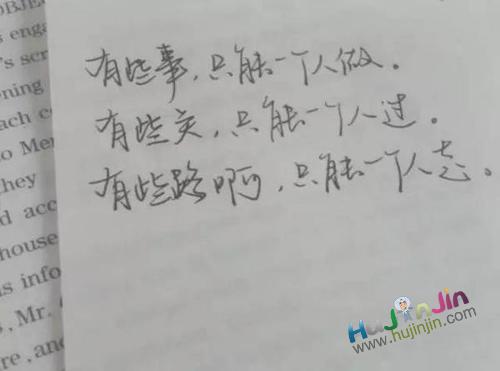 有些事,只能一个人做。
有些关,只能一个人过。
有些路啊,只能一个人走。
OBJE
s enga
's scr
ening
ach c
o Mer
they
d acc
house
s info
, Mr.
re, and
HuJinJin
www.hujinjin.com